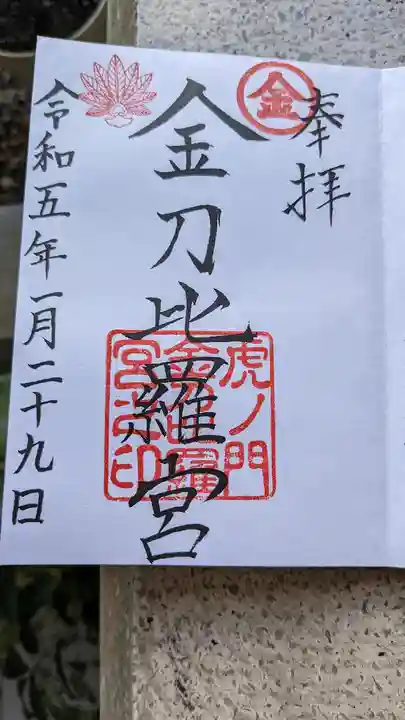 奉拝
金
金刀比羅宮
虎ノ門
金刀比羅
宮之印
令和五年一月二十九日